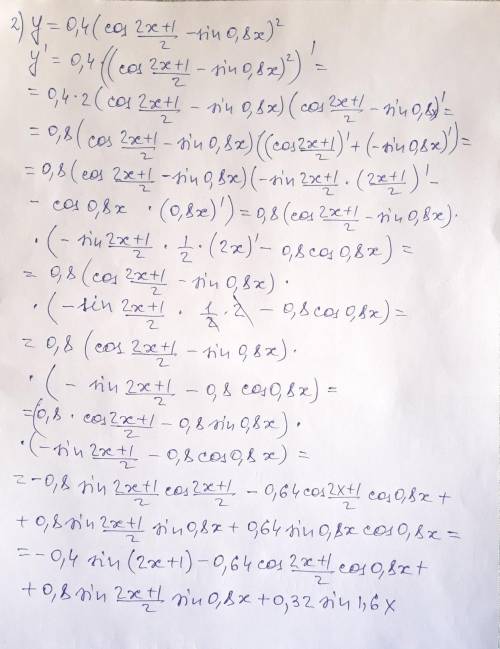 2) y = 0,4(cos (2x+1)/2 - sin 0,8x)²
y' = 0,4·((cos (2x+1)/2 - sin 0,8x)²)' =
= 0,4·2(cos (2x+1)/2 - sin 0,8x)(cos (2x+1)/2 - sin 0,8x)' =
= 0,8(cos (2x+1)/2 - sin 0,8x)((cos (2x+1)/2)' + (-sin 0,8x)') =
= 0,8(cos (2x+1)/2 - sin 0,8x)(-sin (2x+1)/2 · ((2x+1)/2)' -
- cos 0,8x · (0,8x)') = 0,8(cos (2x+1)/2 - sin 0,8x)·
·(- sin (2x+1)/2 · 1/2 · (2x)' - 0,8 cos 0,8x) =
= 0,8(cos (2x+1)/2 - sin 0,8x) ·
·(-sin (2x+1)/2 · 1/2 · 2 - 0,8 cos 0,8x) =
= 0,8 (cos (2x+1)/2 - sin 0,8x)·
·(- sin (2x+1)/2 - 0,8 cos 0,8x) =
= (0,8 · cos (2x+1)/2 - 0,8 sin 0,8x) ·
·(-sin (2x+1)/2 - 0,8 cos 0,8x) =
= -0,8 sin (2x+1)/2 cos (2x+1)/2 - 0,64 cos (2x+1)/2 cos 0,8x +
+ 0,8 sin (2x+1)/2 sin 0,8x + 0,64 sin 0,8x cos 0,8x =
= - 0,4 sin (2x+1) - 0,64 cos (2x+1)/2 cos 0,8x +
+ 0,8 sin (2x+1)/2 sin 0,8x + 0,32 sin 1,6x